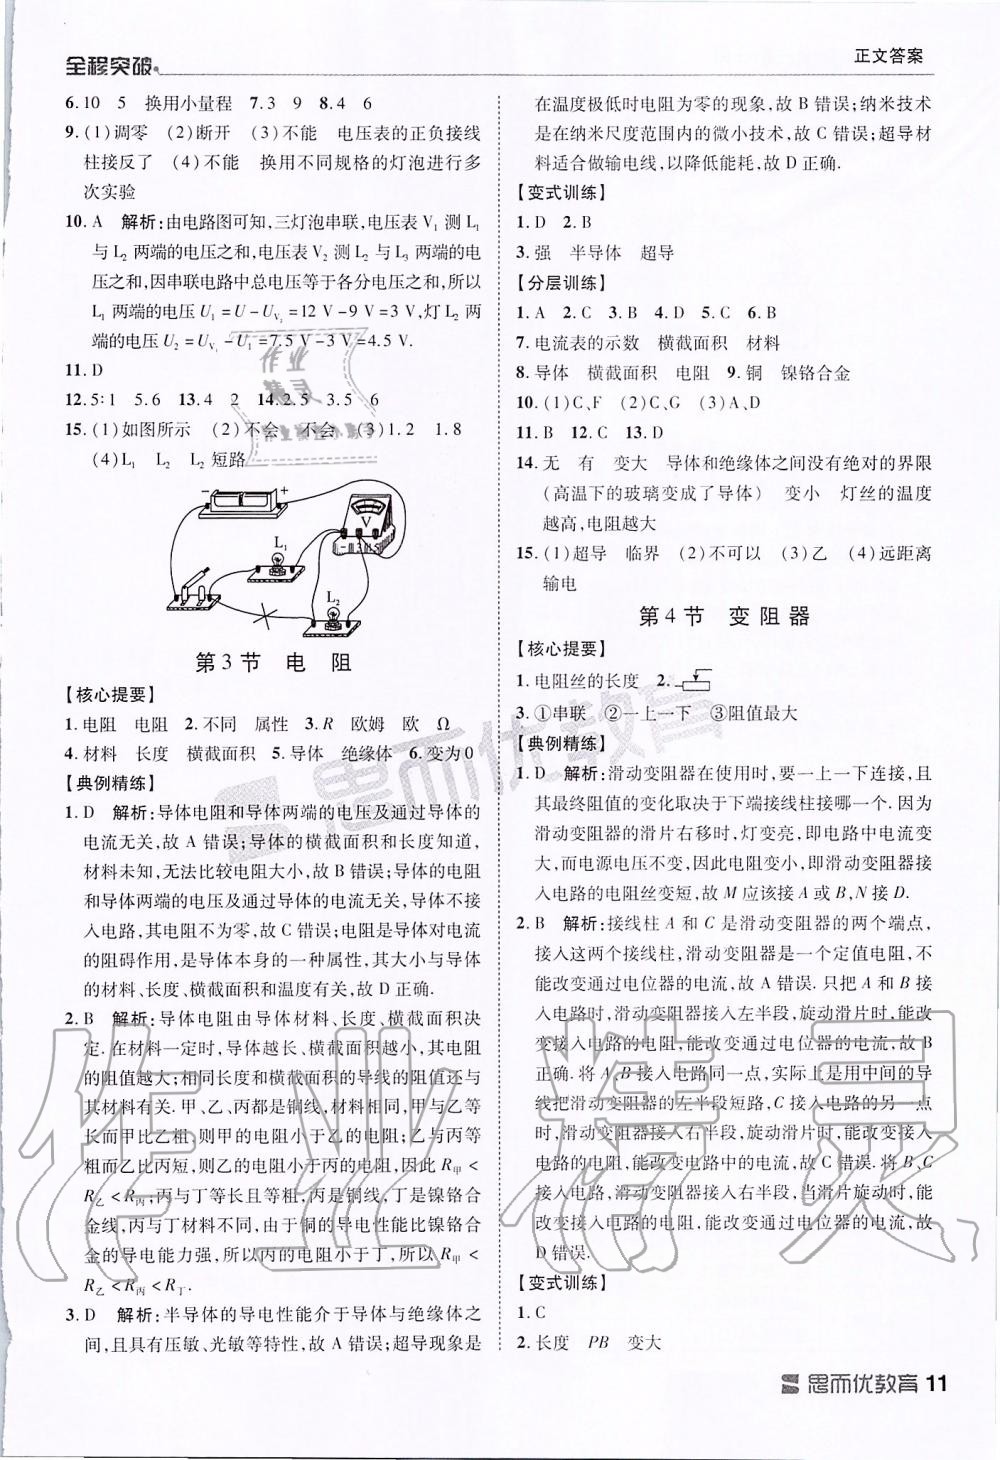 全程突破
正文答案
6.10　5　换用小量程　7.3　9　8.4　6
9.(1)调零　(2)断开　(3)不能　电压表的正负接线
柱接反了　(4)不能　换用不同规格的灯泡进行多
次实验
10.A　解析:由电路图可知,三灯泡串联,电压表 V₁ 测 L₁
与 L₂ 两端的电压之和,电压表 V₂ 测 L₂ 与 L₃ 两端的电
压之和,因串联电路中总电压等于各分电压之和,所以
L₁ 两端的电压 U₁=U-U_V₂=12 V-9 V=3 V,灯 L₂ 两
端的电压 U₂=U_V₁-U₁=7.5 V-3 V=4.5 V.
11.D
12.5∶1　5.6　13.4　2　14.2.5　3.5　6
15.(1)如图所示　(2)不会　不会　(3)1.2　1.8
(4)L₁　L₂　L₂ 短路
- +
V
- 3 15
L₁
L₂
第 3 节　电　阻
【核心提要】
1.电阻　电阻　2.不同　属性　3.R　欧姆　欧　Ω
4.材料　长度　横截面积　5.导体　绝缘体　6.变为0
【典例精练】
1.D　解析:导体电阻和导体两端的电压及通过导体的
电流无关,故 A 错误;导体的横截面积和长度知道,
材料未知,无法比较电阻大小,故 B 错误;导体的电阻
和导体两端的电压及通过导体的电流无关,导体不接
入电路,其电阻不为零,故 C 错误;电阻是导体对电流
的阻碍作用,是导体本身的一种属性,其大小与导体
的材料、长度、横截面积和温度有关,故 D 正确.
2.B　解析:导体电阻由导体材料、长度、横截面积决
定.在材料一定时,导体越长、横截面积越小,其电阻
的阻值越大;相同长度和横截面积的导线的阻值还与
其材料有关.甲、乙、丙都是铜线,材料相同,甲与乙等
长而甲比乙粗,则甲的电阻小于乙的电阻;乙与丙等
粗而乙比丙短,则乙的电阻小于丙的电阻,因此 R甲<
R乙<R丙;丙与丁等长且等粗,丙是铜线,丁是镍铬合
金线,丙与丁材料不同,由于铜的导电性能比镍铬合
金的导电能力强,所以丙的电阻小于丁,所以 R甲<
R乙<R丙<R丁.
3.D　解析:半导体的导电性能介于导体与绝缘体之
间,且具有压敏、光敏等特性,故 A 错误;超导现象是
在温度极低时电阻为零的现象,故 B 错误;纳米技术
是在纳米尺度范围内的微小技术,故 C 错误;超导材
料适合做输电线,以降低能耗,故 D 正确.
【变式训练】
1.D　2.B
3.强　半导体　超导
【分层训练】
1.A　2.C　3.B　4.D　5.C　6.B
7.电流表的示数　横截面积　材料
8.导体　横截面积　电阻　9.铜　镍铬合金
10.(1)C、F　(2)C、G　(3)A、D
11.B　12.C　13.D
14.无　有　变大　导体和绝缘体之间没有绝对的界限
(高温下的玻璃变成了导体)　变小　灯丝的温度
越高,电阻越大
15.(1)超导　临界　(2)不可以　(3)乙　(4)远距离
输电
第 4 节　变 阻 器
【核心提要】
1.电阻丝的长度　2.
3.①串联　②一上一下　③阻值最大
【典例精练】
1.D　解析:滑动变阻器在使用时,要一上一下连接,且
其最终阻值的变化取决于下端接线柱接哪一个.因为
滑动变阻器的滑片右移时,灯变亮,即电路中电流变
大,而电源电压不变,因此电阻变小,即滑动变阻器接
入电路的电阻丝变短,故 M 应该接 A 或 B,N 接 D.
2.B　解析:接线柱 A 和 C 是滑动变阻器的两个端点,
接入这两个接线柱,滑动变阻器是一个定值电阻,不
能改变通过电位器的电流,故 A 错误.只把 A 和 B 接
入电路时,滑动变阻器接入左半段,旋动滑片时,能改
变接入电路的电阻,能改变通过电位器的电流,故 B
正确.将 A、B 接入电路的同一点,实际上是用中间的导
线把滑动变阻器的左半段短路,C 接入电路的另一点
时,滑动变阻器接入右半段,旋动滑片时,能改变接入
电路的电阻,能改变电路中的电流,故 C 错误.将 B、C
接入电路,滑动变阻器接入右半段,当滑片旋动时,能
改变接入电路的电阻,能改变通过电位器的电流,故
D 错误.
【变式训练】
1.C
2.长度　PB　变大
思而优教育 11
思而优教育
作业精灵